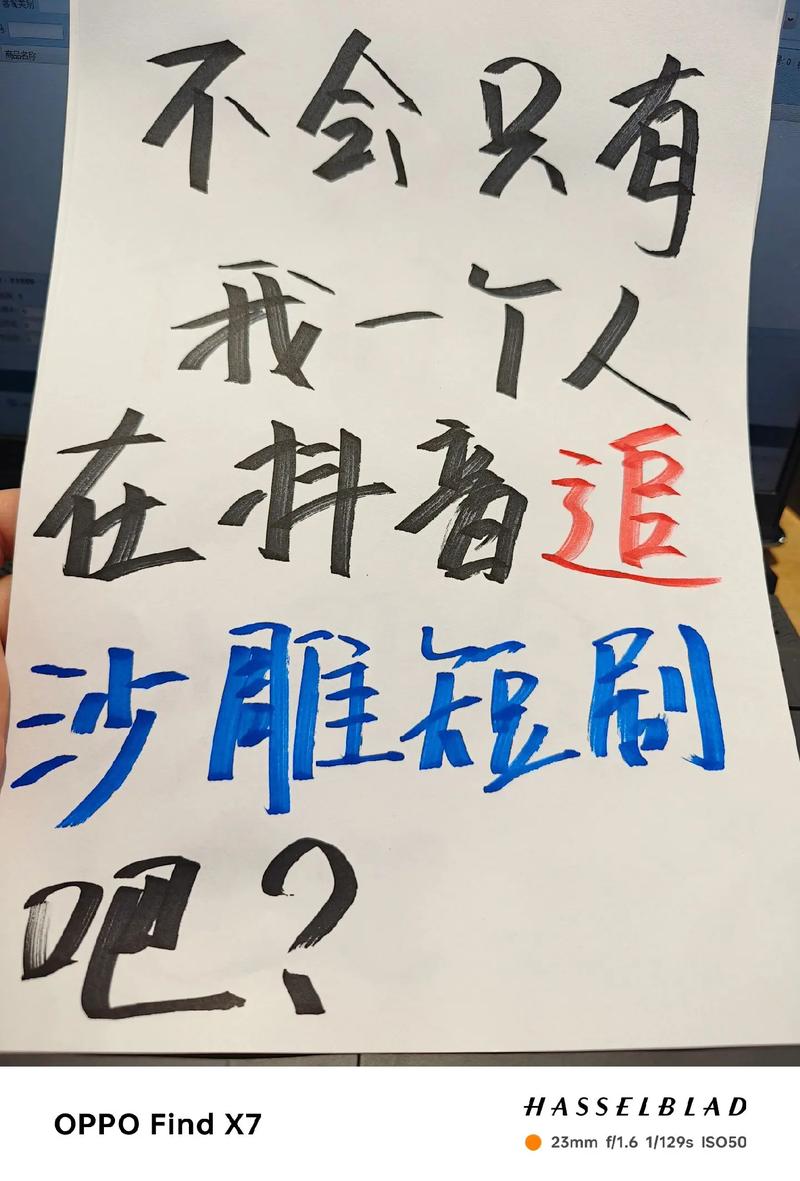 商品名称
不会只有
我一个人
在抖音追
沙雕短刷
吧？
OPPO Find X7
HASSELBLAD
23mm f/1.6 1/129s ISO50